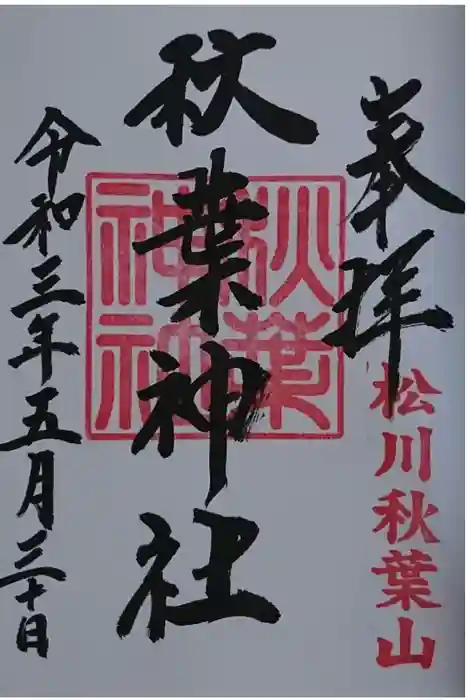 奉拝
松川秋葉山
秋葉神社
秋葉神社
令和三年五月三十日